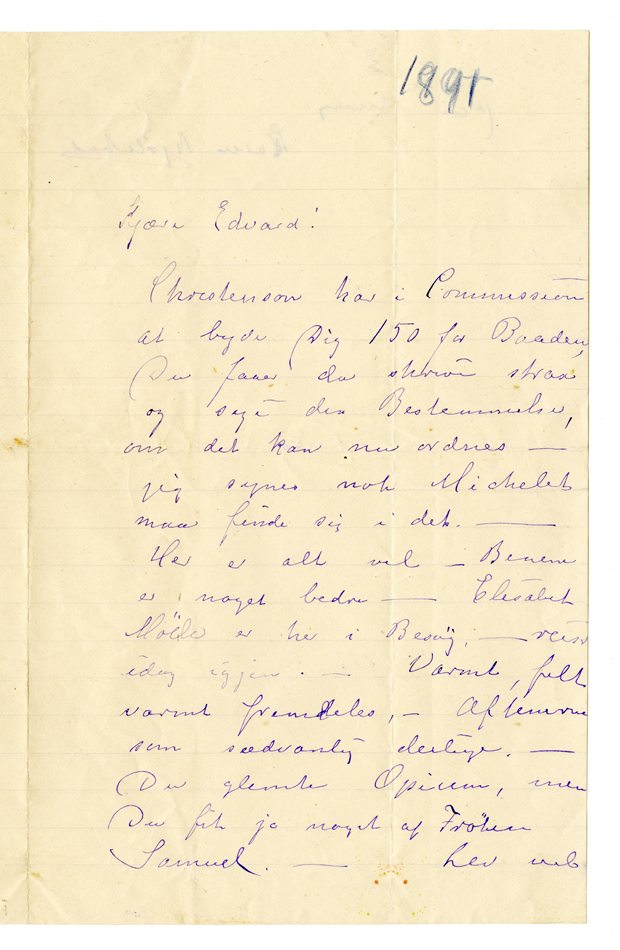 1891
Kjære Edvard!
Christenson har i Commission
at byde Dig 150 for Baaden,
Du faaer da skrive strax
og sige din Bestemmelse,
om det kan nu ordnes —
jeg synes nok Michelet
maa finde sig i det. —
Her er alt vel — Benene
er noget bedre — Elisabet
Mölle er her i Besøg, — reiser
idag igjen. — Varmt, fælt
varmt fremdeles, — Aftenerne
som sædvanlig deilige. —
Du glemte Opium, men
Du fik jo noget af Frøken
Samuel. — Lev vel